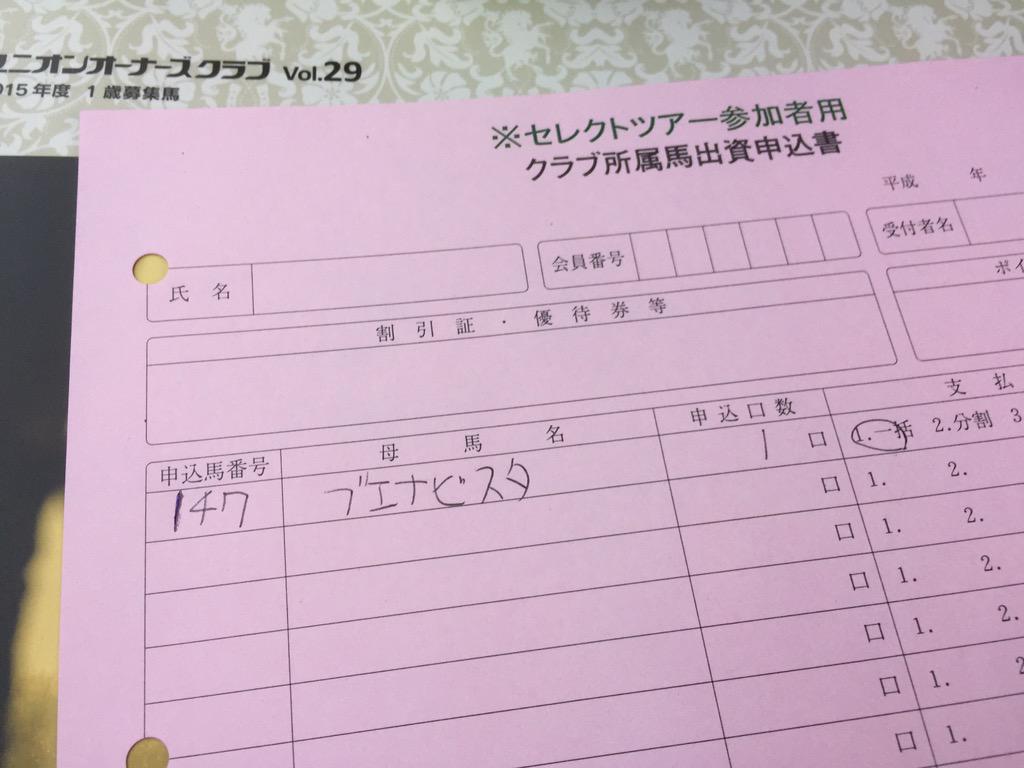 ユニオンオーナーズクラブ Vol.29
015年度 1歳募集馬
※セレクトツアー参加者用
クラブ所属馬出資申込書
平成 年
氏名 会員番号 受付者名
割引証・優待券等 ポイ
申込馬番号 母馬名 申込口数 支払
147 ブエナビスタ 1口 1.一括 2.分割 3
口 1. 2.
口 1. 2.
口 1. 2.
口 1. 2.
口 1. 2
口 1.